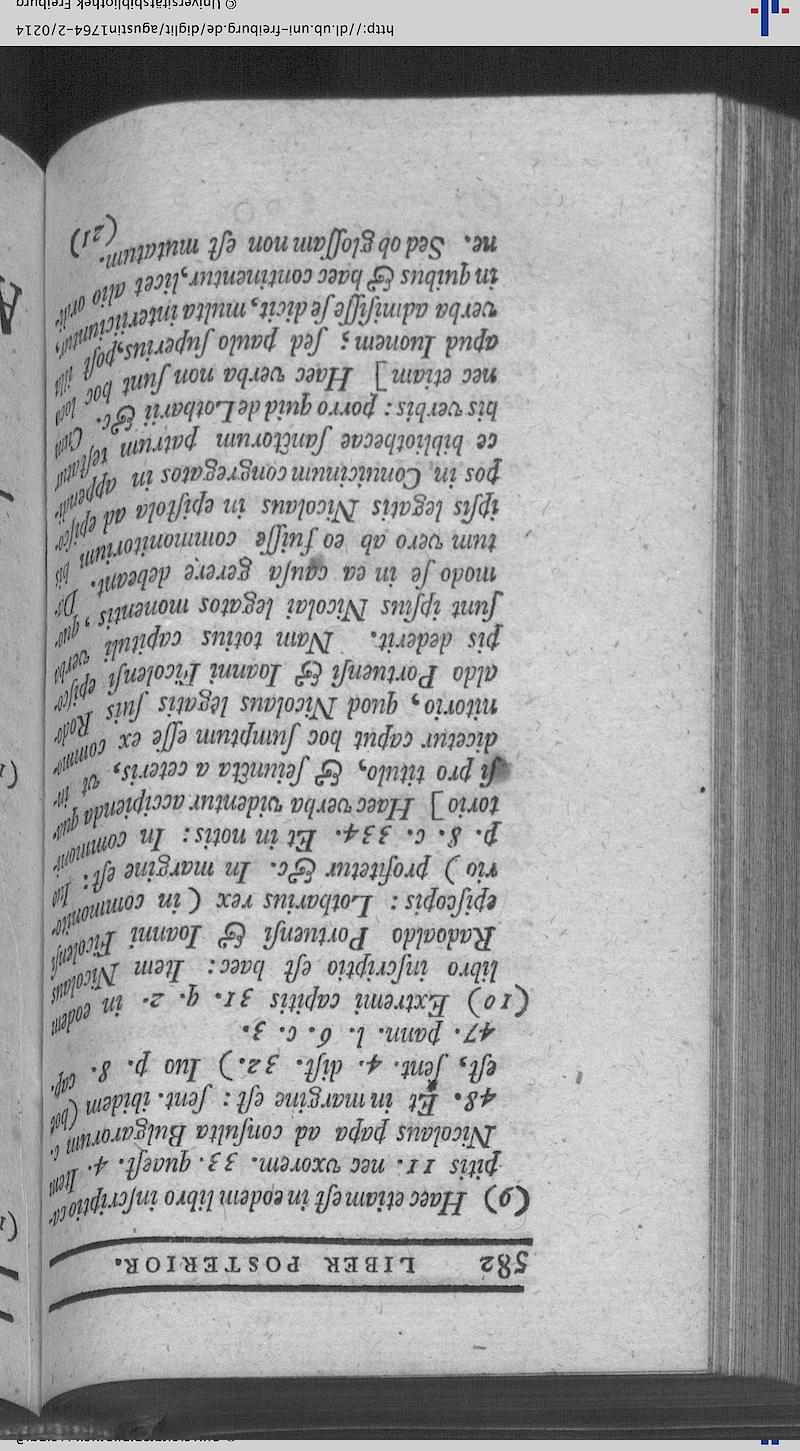 582 LIBER POSTERIOR.
(9) Haec etiam est in eodem libro inscriptio ca-
pitis 11. nec vxorem. 33. quaest. 4. Item
Nicolaus papa ad consulta Bulgarorum c.
48. Et in margine est: sent. ibidem (hoc
est, sent. 4. dist. 32.) Iuo p. 8. cap.
47. pann. l. 6. c. 3.
(10) Extremi capitis 31. q. 2. in eodem
libro inscriptio est haec: Item Nicolaus
Radoaldo Portuensi & Ioanni Ficolensi
episcopis: Lotharius rex (in commonito-
rio) profitetur &c. In margine est: Iuo
p. 8. c. 334. Et in notis: In commoni-
torio] Haec verba videntur accipienda qua-
si pro titulo, & seiuncta a ceteris, vt in-
dicetur caput hoc sumptum esse ex commo-
nitorio, quod Nicolaus legatis suis Rodo-
aldo Portuensi & Ioanni Ficolensi episco-
pis dederit. Nam totius capituli verba
sunt ipsius Nicolai legatos monentis, quo-
modo se in ea causa gerere debeant. Da-
tum vero ab eo fuisse commonitorium his
ipsis legatis Nicolaus in epistola ad episco-
pos in Conuicinum congregatos in appendi-
ce bibliothecae sanctorum patrum testatur
his verbis: porro quid de Lotharii &c. Cum
nec etiam] Haec verba non sunt hoc loco
apud Iuonem; sed paulo superius, post illa
verba admisisse se dicit, multa interiiciuntur,
in quibus & haec continentur, licet alio ordi-
ne. Sed ob glossam non est mutatum.
(21)
http://dl.ub.uni-freiburg.de/diglit/augustin1764-2/0214
© Universitätsbibliothek Freiburg